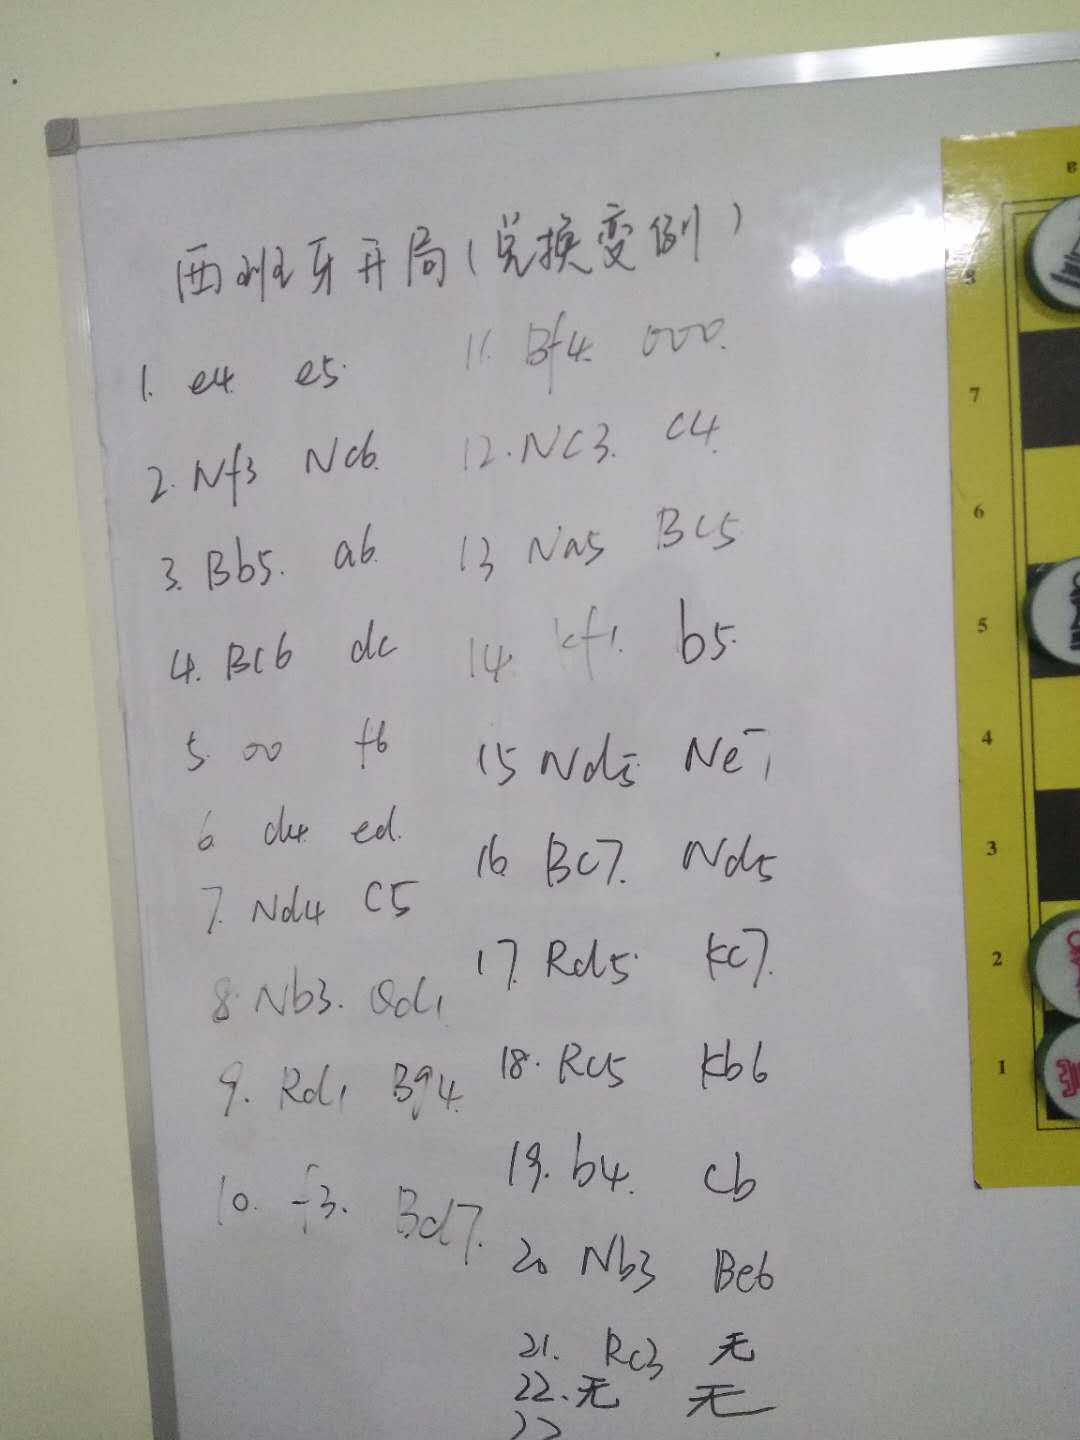 西班牙开局(兑换变例)
1. e4 e5.
2. Nf3 Nc6.
3. Bb5. a6.
4. Bc6 dc
5. 00 f6
6 d4 ed.
7. Nd4 C5
8. Nb3. Qd1
9. Rd1 Bg4.
10. f3. Bd7.
11. Bf4. 000.
12. NC3. C4.
13 Na5 BC5
14. kf1. b5.
15 Nd5 Ne7
16 BC7. Nd5
17. Rd5. KC7.
18. Rc5 Kb6
19. b4. cb
20 Nb3 Be6
21. Rc3 无
22. 无 无
8
7
6
5
4
3
2
1